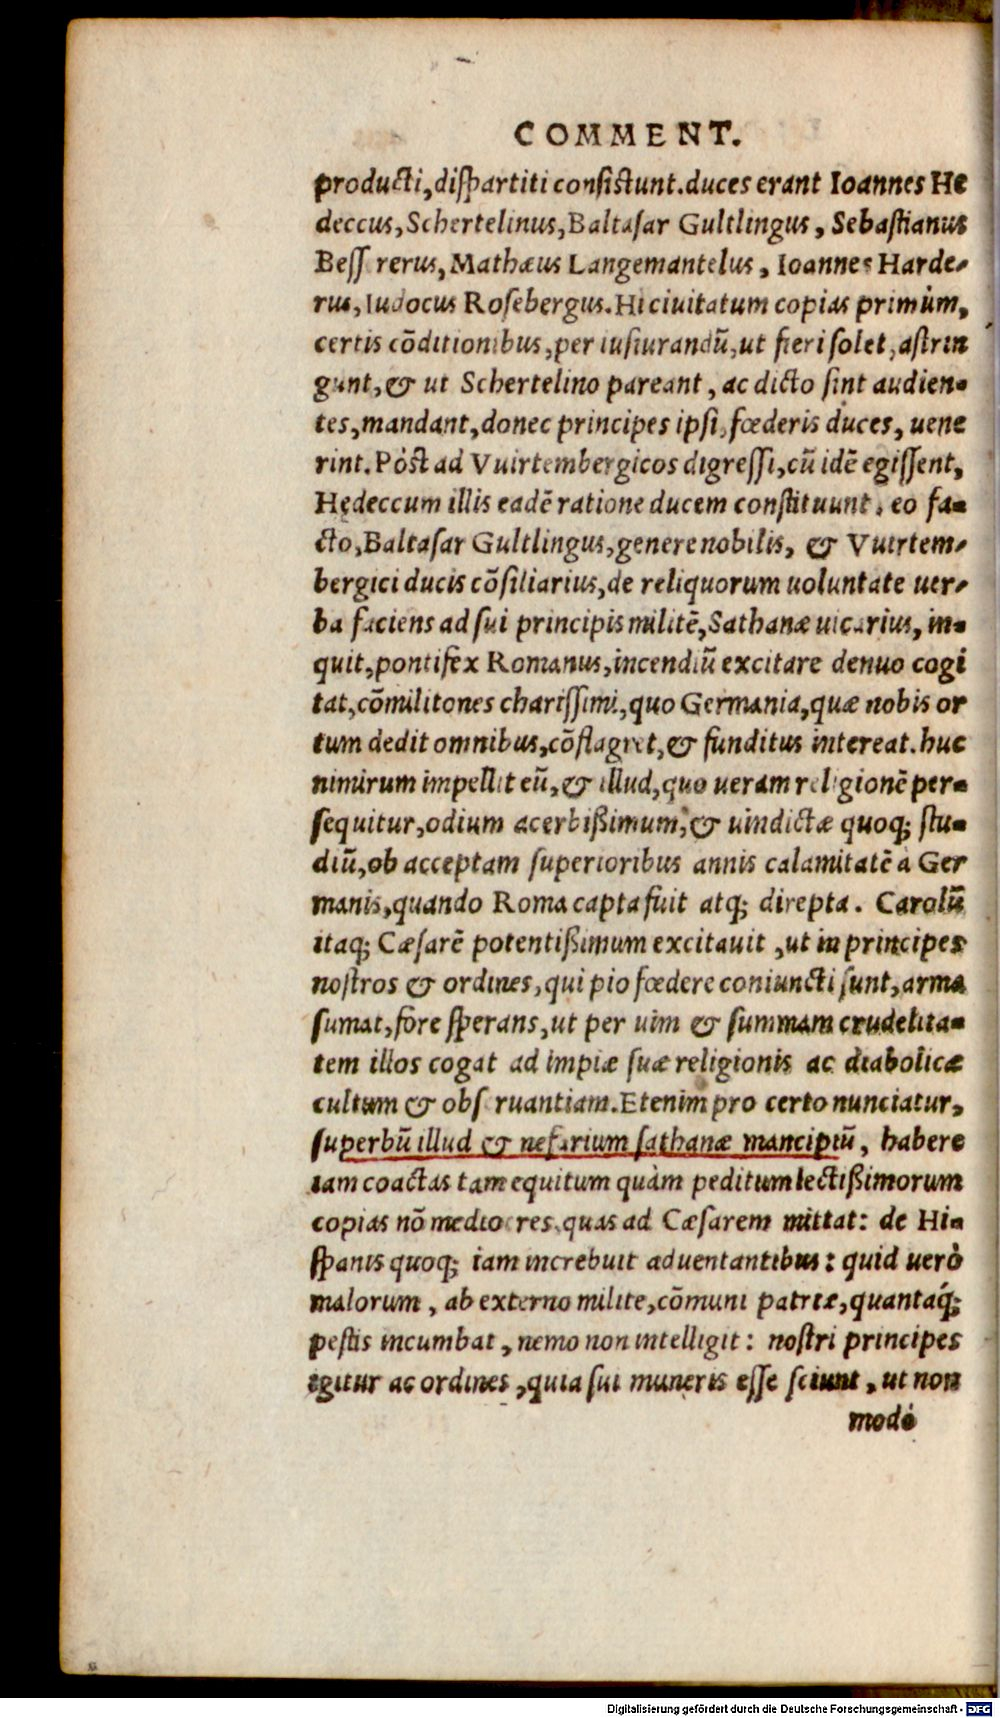 COMMENT.
producti, dispartiti consistunt. duces erant Ioannes He
deccus, Schertelinus, Baltasar Gultlingus, Sebastianus
Bess rerus, Mathæus Langemantelus, Ioannes Harde-
rus, Iudocus Rosebergus. Hi ciuitatum copias primùm,
certis cōditionibus, per iusiurandū, ut fieri solet, astrin
gunt, & ut Schertelino pareant, ac dicto sint audien-
tes, mandant, donec principes ipsi, fœderis duces, uene
rint. Pòst ad Vuirtembergicos digressi, cū idē egissent,
Hędeccum illis eadē ratione ducem constituunt. eo fa-
cto, Baltasar Gultlingus, genere nobilis, & Vuirtem-
bergici ducis cōsiliarius, de reliquorum uoluntate uer-
ba faciens ad sui principis militē, Sathanæ uicarius, in-
quit, pontifex Romanus, incendiū excitare denuo cogi
tat, cōmilitones charissimi, quo Germania, quæ nobis or
tum dedit omnibus, cōflagret, & funditus intereat. huc
nimirum impellit eū, & illud, quo ueram religionē per-
sequitur, odium acerbißimum, & uindictæ quoq; stu-
diū, ob acceptam superioribus annis calamitatē à Ger
manis, quando Roma capta fuit atq; direpta. Carolū
itaq; Cæsarē potentißimum excitauit, ut in principes
nostros & ordines, qui pio fœdere coniuncti sunt, arma
sumat, fore sperans, ut per uim & summam crudelita-
tem illos cogat ad impiæ suæ religionis ac diabolicæ
cultum & obs ruantiam. Etenim pro certo nunciatur,
superbū illud & nefarium sathanæ mancipiū, habere
iam coactas tam equitum quàm peditum lectißimorum
copias nō mediocres, quas ad Cæsarem mittat: de Hi-
spanis quoq; iam increbuit aduentantibus: quid uerò
malorum, ab externo milite, cōmuni patriæ, quantaq́;
pestis incumbat, nemo non intelligit: nostri principes
igitur ac ordines, quia sui muneris esse sciunt, ut non
modò
Digitalisierung gefördert durch die Deutsche Forschungsgemeinschaft - DFG